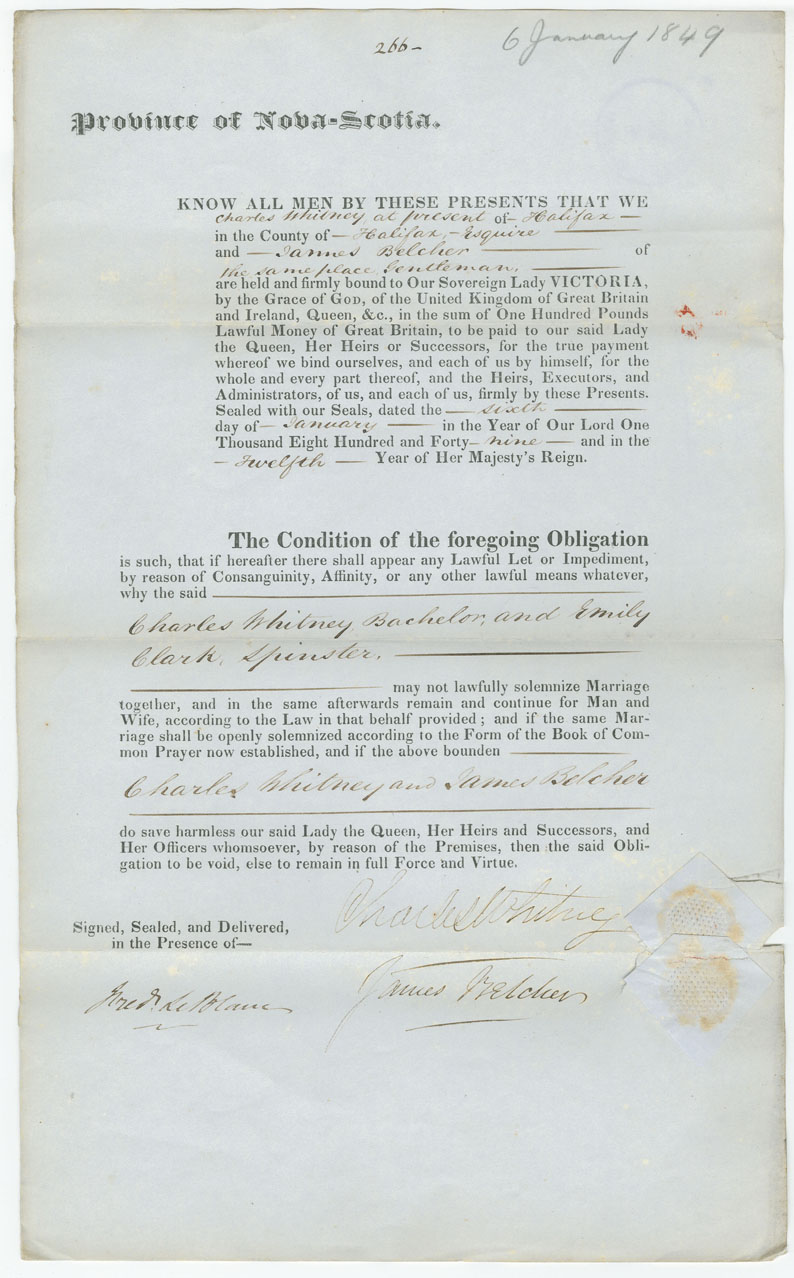 266-
6 January 1849
Province of Nova-Scotia.
KNOW ALL MEN BY THESE PRESENTS THAT WE
Charles Whitney, at present of - Halifax -
in the County of - Halifax, - Esquire
and - James Belcher - of
the same place, Gentleman.
are held and firmly bound to Our Sovereign Lady VICTORIA,
by the Grace of GOD, of the United Kingdom of Great Britain
and Ireland, Queen, &c., in the sum of One Hundred Pounds
Lawful Money of Great Britain, to be paid to our said Lady
the Queen, Her Heirs or Successors, for the true payment
whereof we bind ourselves, and each of us by himself, for the
whole and every part thereof, and the Heirs, Executors, and
Administrators, of us, and each of us, firmly by these Presents.
Sealed with our Seals, dated the - sixth -
day of - January - in the Year of Our Lord One
Thousand Eight Hundred and Forty- nine - and in the
- Twelfth - Year of Her Majesty's Reign.
The Condition of the foregoing Obligation
is such, that if hereafter there shall appear any Lawful Let or Impediment,
by reason of Consanguinity, Affinity, or any other lawful means whatever,
why the said
Charles Whitney, Bachelor, and Emily
Clark, Spinster.
may not lawfully solemnize Marriage
together, and in the same afterwards remain and continue for Man and
Wife, according to the Law in that behalf provided; and if the same Mar-
riage shall be openly solemnized according to the Form of the Book of Com-
mon Prayer now established, and if the above bounden
Charles Whitney and James Belcher
do save harmless our said Lady the Queen, Her Heirs and Successors, and
Her Officers whomsoever, by reason of the Premises, then the said Obli-
gation to be void, else to remain in full Force and Virtue.
Charles Whitney
Signed, Sealed, and Delivered,
in the Presence of—
James Belcher
Fredk LeBlanc